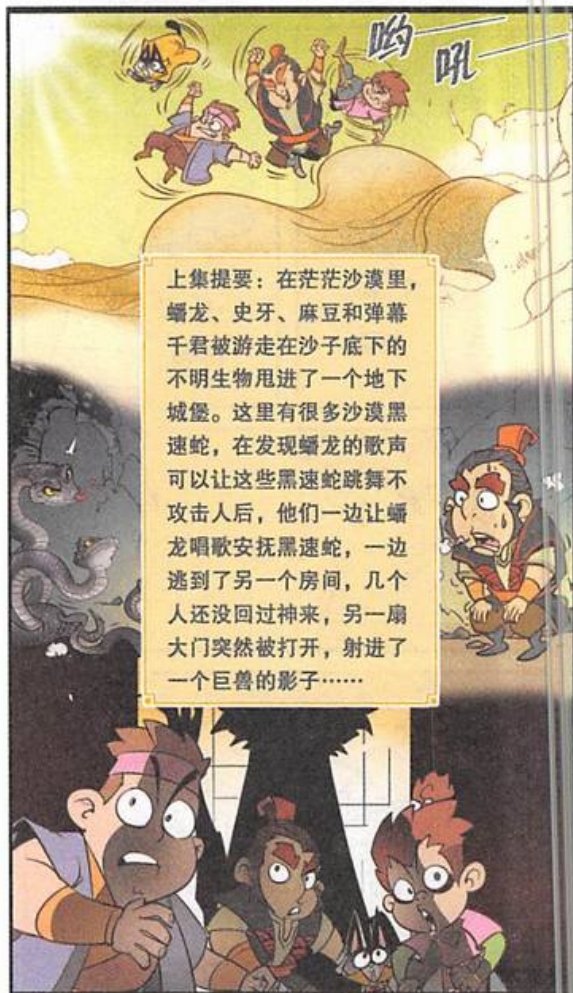 哟
吼
上集提要：在茫茫沙漠里，
蟠龙、史牙、麻豆和弹幕
千君被游走在沙子底下的
不明生物甩进了一个地下
城堡。这里有很多沙漠黑
速蛇，在发现蟠龙的歌声
可以让这些黑速蛇跳舞不
攻击人后，他们一边让蟠
龙唱歌安抚黑速蛇，一边
逃到了另一个房间，几个
人还没回过神来，另一扇
大门突然被打开，射进了
一个巨兽的影子……